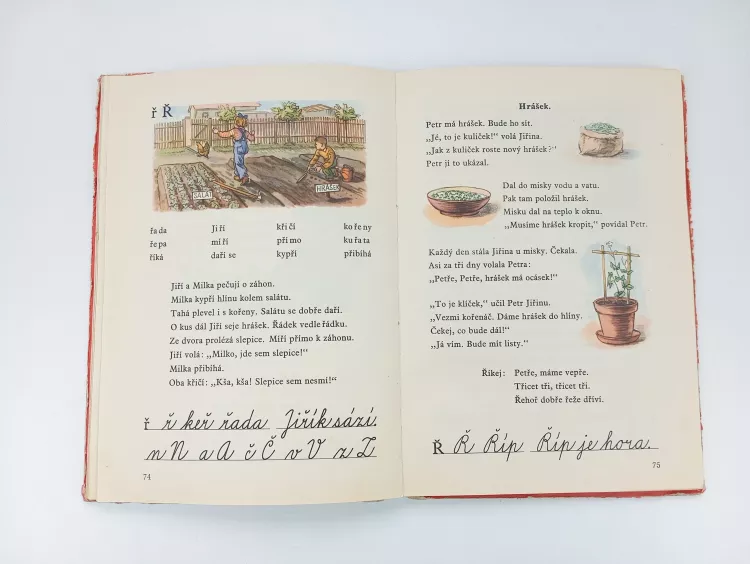 ř Ř
SALÁT
HRÁŠEK
řada Jiří křičí kořeny
řepa míří přímo kuřata
říká daří se kypří přibíhá
Jiří a Milka pečují o záhon.
Milka kypří hlínu kolem salátu.
Tahá plevel i s kořeny. Salátu se dobře daří.
O kus dál Jiří seje hrášek. Řádek vedle řádku.
Ze dvora prolézá slepice. Míří přímo k záhonu.
Jiří volá: „Milko, jde sem slepice!"
Milka přibíhá.
Oba křičí: „Kša, kša! Slepice sem nesmí!"
ř ř keř řada Jiřík sází.
n N a A č Č v V z Z
74
Hrášek.
Petr má hrášek. Bude ho sít.
„Jé, to je kuliček!" volá Jiřina.
„Jak z kuliček roste nový hrášek?"
Petr jí to ukázal.
Dal do misky vodu a vatu.
Pak tam položil hrášek.
Misku dal na teplo k oknu.
„Musíme hrášek kropit," povídal Petr.
Každý den stála Jiřina u misky. Čekala.
Asi za tři dny volala Petra:
„Petře, Petře, hrášek má ocásek!"
„To je klíček," učil Petr Jiřinu.
„Vezmi kořenáč. Dáme hrášek do hlíny.
Čekej, co bude dál!"
„Já vím. Bude mít listy."
Říkej: Petře, máme vepře.
Třicet tři, třicet tři.
Řehoř dobře řeže dříví.
Ř Ř Říp Říp je hora.
75